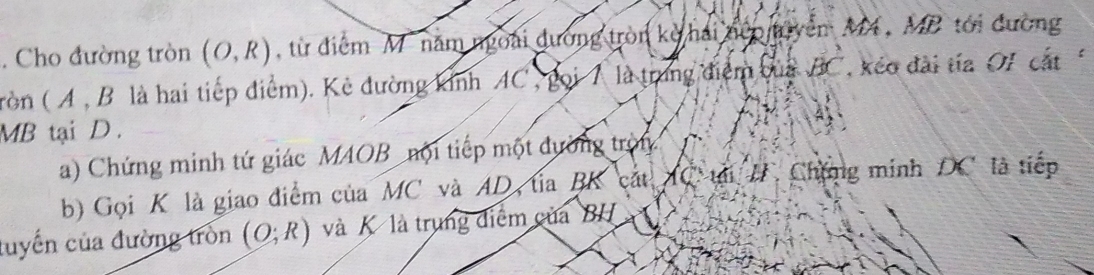 . Cho đường tròn (O, R), từ điểm M nằm ngoài đường tròn kẻ hai tiếp tuyến MA, MB tới đường
ròn ( A , B là hai tiếp điểm). Kẻ đường kính AC, gọi I là trung điểm của BC, kéo dài tia OI cắt
MB tại D.
a) Chứng minh tứ giác MAOB nội tiếp một đường tròn.
b) Gọi K là giao điểm của MC và AD, tia BK cắt AC tại H. Chứng minh DC là tiếp
tuyến của đường tròn (O;R) và K là trung điểm của BH